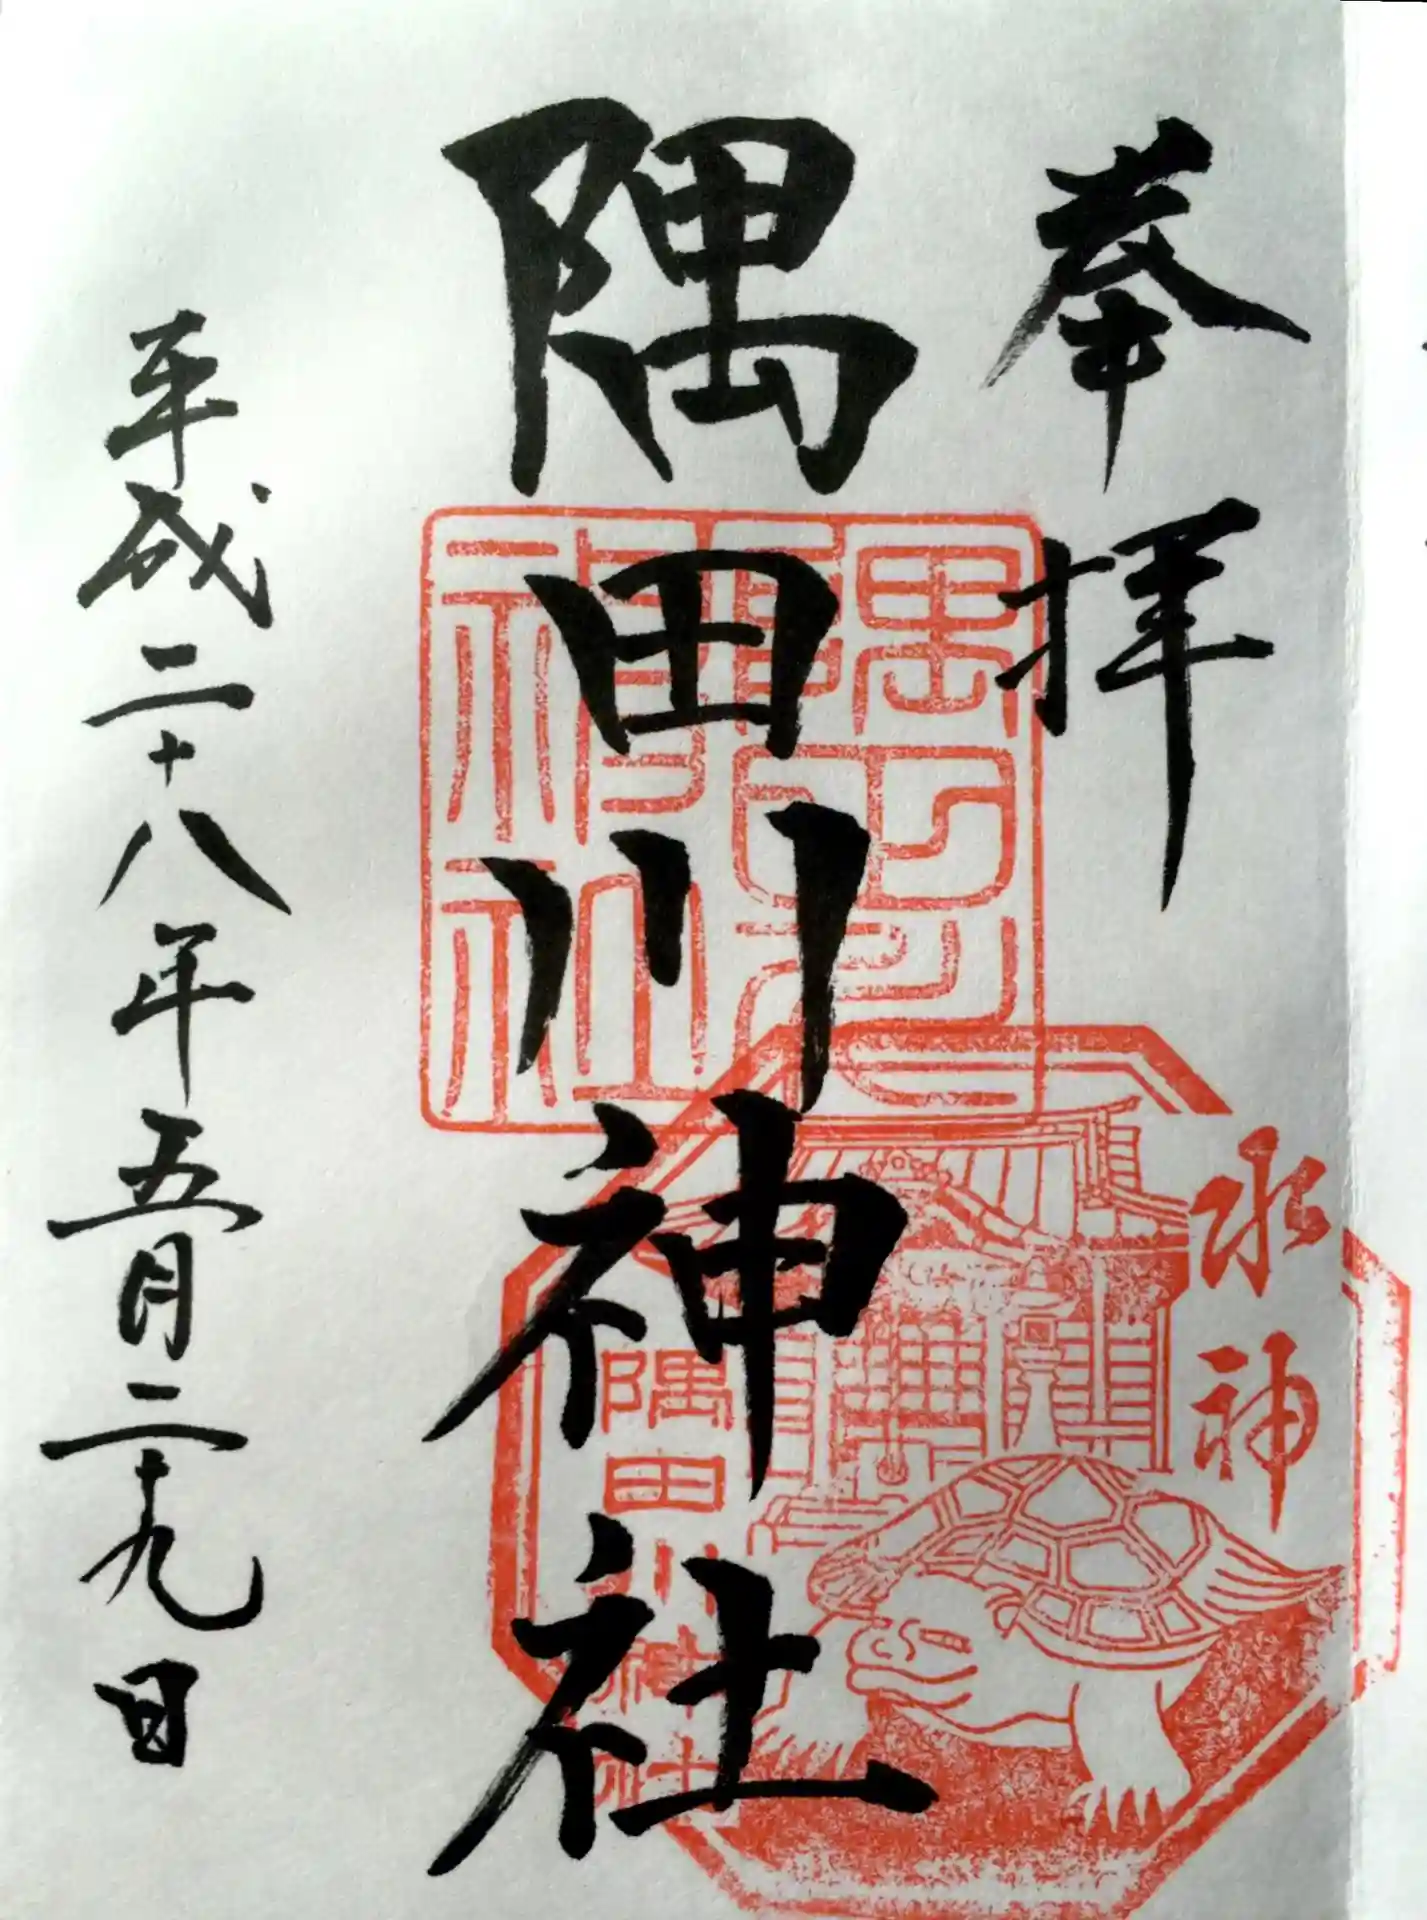 奉拝
隅田川神社
平成二十八年五月二十九日
隅田川神社
水神
隅田川神社